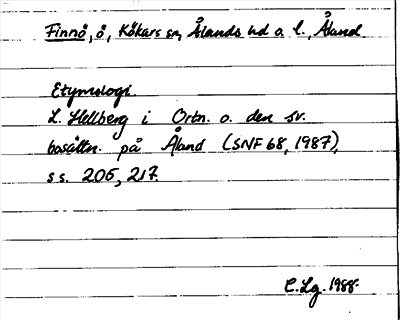 Finnö, ö, Kökars sn, Ålands hd o. l., Åland
Etymologi
L. Hellberg i Ortn. o. den sv.
bosättn. på Åland (SNF 68, 1987),
ss. 206, 217.
C.Lg. 1988.